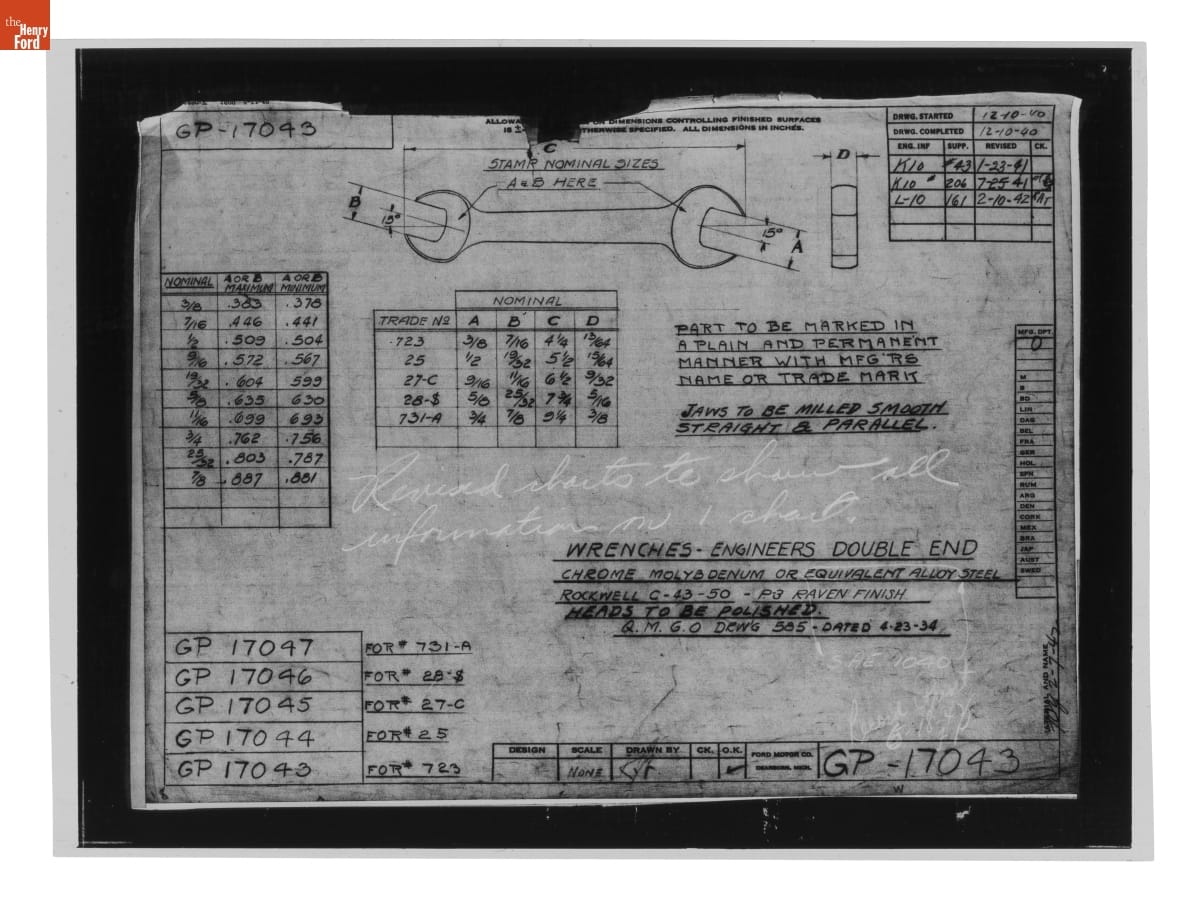 the
Henry
Ford
GP-17043
ON DIMENSIONS CONTROLLING FINISHED SURFACES
OTHERWISE SPECIFIED. ALL DIMENSIONS IN INCHES.
DRWG. STARTED 12-10-40
DRWG. COMPLETED 12-10-40
ENG. INF SUPP. REVISED CK.
K10 #43 1-23-41
K10 # 206 7-25-41
L-10 161 2-10-42
C
STAMP NOMINAL SIZES
A & B HERE
B
15°
15°
A
D
NOMINAL A OR B MAXIMUM A OR B MINIMUM
3/8 .383 .378
7/16 .446 .441
1/2 .509 .504
9/16 .572 .567
19/32 .604 .599
5/8 .635 .630
11/16 .699 .693
3/4 .762 .756
25/32 .803 .787
7/8 .887 .881
NOMINAL
TRADE No A B C D
723 3/8 7/16 4 1/4 13/64
25 1/2 19/32 5 1/2 15/64
27-C 9/16 11/16 6 1/2 9/32
28-S 5/8 25/32 7 3/4 5/16
731-A 3/4 7/8 9 1/4 3/8
PART TO BE MARKED IN
A PLAIN AND PERMANENT
MANNER WITH MFG'RS
NAME OR TRADE MARK
JAWS TO BE MILLED SMOOTH
STRAIGHT & PARALLEL.
MFG. DPT.
O
M
B
BO
LIN
DAG
BEL
FRA
GER
HOL
SPN
RUM
ARG
DEN
CORK
MEX
BRA
JAP
AUST
SWED
Revised charts to show all
information on 1 chart.
WRENCHES - ENGINEERS DOUBLE END
CHROME MOLYBDENUM OR EQUIVALENT ALLOY STEEL
ROCKWELL C-43-50 - P3 RAVEN FINISH
HEADS TO BE POLISHED.
Q.M.G.O DRW'G 585 - DATED 4-23-34
SAE 1040
GP 17047 FOR # 731-A
GP 17046 FOR # 28-S
GP 17045 FOR # 27-C
GP 17044 FOR # 25
GP 17043 FOR # 723
DESIGN SCALE DRAWN BY CK. O.K.
NONE
FORD MOTOR CO.
DEARBORN, MICH.
GP-17043
W